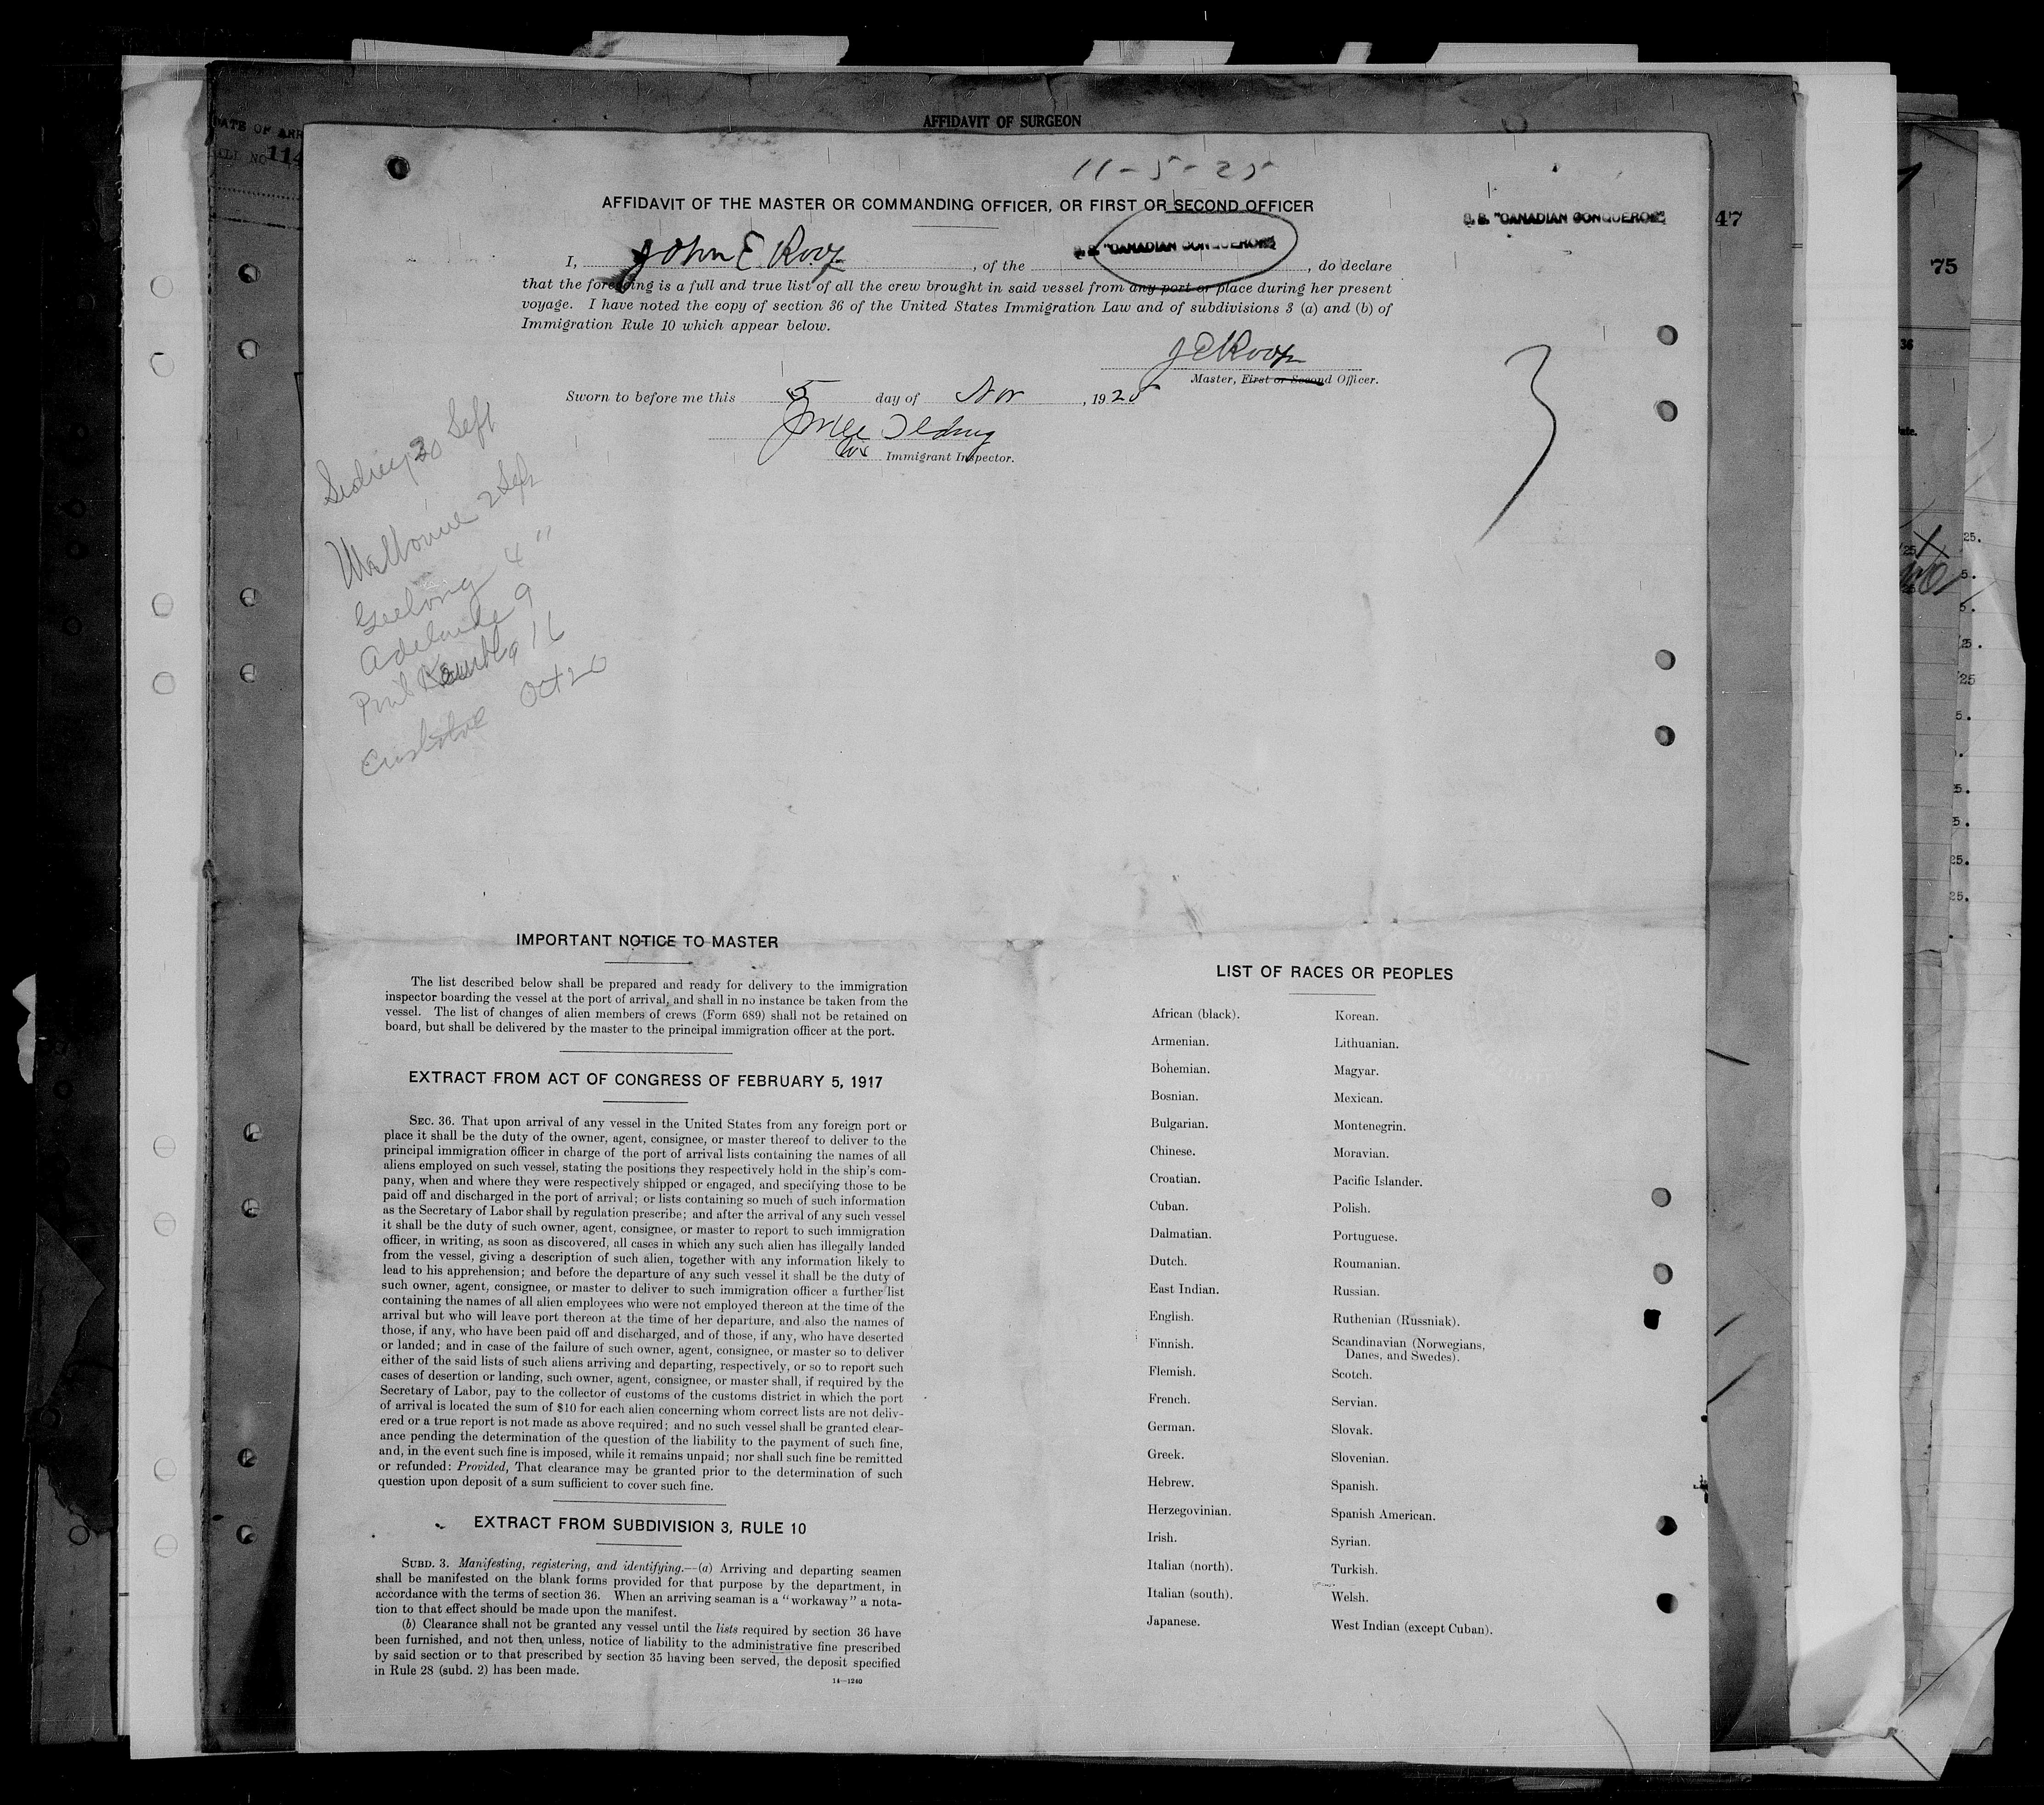 AFFIDAVIT OF SURGEON
DATE OF ARR
114
47
75
36
11-5-25
AFFIDAVIT OF THE MASTER OR COMMANDING OFFICER, OR FIRST OR SECOND OFFICER
S. S. "CANADIAN CONQUEROR"
I, John E Roop, of the S. S. "CANADIAN CONQUEROR", do declare
that the foregoing is a full and true list of all the crew brought in said vessel from any port or place during her present
voyage. I have noted the copy of section 36 of the United States Immigration Law and of subdivisions 3 (a) and (b) of
Immigration Rule 10 which appear below.
J E Roop
Master, First or Second Officer.
Sworn to before me this 5 day of Nov, 1925
Immigrant Inspector.
Sidney 30 Sept
Melbourne 2 Sept
Geelong 4 "
Adelaide 9
Port Kembla 16
Oct 20
IMPORTANT NOTICE TO MASTER
The list described below shall be prepared and ready for delivery to the immigration
inspector boarding the vessel at the port of arrival, and shall in no instance be taken from the
vessel. The list of changes of alien members of crews (Form 689) shall not be retained on
board, but shall be delivered by the master to the principal immigration officer at the port.
EXTRACT FROM ACT OF CONGRESS OF FEBRUARY 5, 1917
SEC. 36. That upon arrival of any vessel in the United States from any foreign port or
place it shall be the duty of the owner, agent, consignee, or master thereof to deliver to the
principal immigration officer in charge of the port of arrival lists containing the names of all
aliens employed on such vessel, stating the positions they respectively hold in the ship's com-
pany, when and where they were respectively shipped or engaged, and specifying those to be
paid off and discharged in the port of arrival; or lists containing so much of such information
as the Secretary of Labor shall by regulation prescribe; and after the arrival of any such vessel
it shall be the duty of such owner, agent, consignee, or master to report to such immigration
officer, in writing, as soon as discovered, all cases in which any such alien has illegally landed
from the vessel, giving a description of such alien, together with any information likely to
lead to his apprehension; and before the departure of any such vessel it shall be the duty of
such owner, agent, consignee, or master to deliver to such immigration officer a further list
containing the names of all alien employees who were not employed thereon at the time of the
arrival but who will leave port thereon at the time of her departure, and also the names of
those, if any, who have been paid off and discharged, and of those, if any, who have deserted
or landed; and in case of the failure of such owner, agent, consignee, or master so to deliver
either of the said lists of such aliens arriving and departing, respectively, or so to report such
cases of desertion or landing, such owner, agent, consignee, or master shall, if required by the
Secretary of Labor, pay to the collector of customs of the customs district in which the port
of arrival is located the sum of $10 for each alien concerning whom correct lists are not deliv-
ered or a true report is not made as above required; and no such vessel shall be granted clear-
ance pending the determination of the question of the liability to the payment of such fine,
and, in the event such fine is imposed, while it remains unpaid; nor shall such fine be remitted
or refunded: Provided, That clearance may be granted prior to the determination of such
question upon deposit of a sum sufficient to cover such fine.
EXTRACT FROM SUBDIVISION 3, RULE 10
SUBD. 3. Manifesting, registering, and identifying.—(a) Arriving and departing seamen
shall be manifested on the blank forms provided for that purpose by the department, in
accordance with the terms of section 36. When an arriving seaman is a "workaway" a nota-
tion to that effect should be made upon the manifest.
(b) Clearance shall not be granted any vessel until the lists required by section 36 have
been furnished, and not then unless, notice of liability to the administrative fine prescribed
by said section or to that prescribed by section 35 having been served, the deposit specified
in Rule 28 (subd. 2) has been made.
14—1240
LIST OF RACES OR PEOPLES
African (black).
Armenian.
Bohemian.
Bosnian.
Bulgarian.
Chinese.
Croatian.
Cuban.
Dalmatian.
Dutch.
East Indian.
English.
Finnish.
Flemish.
French.
German.
Greek.
Hebrew.
Herzegovinian.
Irish.
Italian (north).
Italian (south).
Japanese.
Korean.
Lithuanian.
Magyar.
Mexican.
Montenegrin.
Moravian.
Pacific Islander.
Polish.
Portuguese.
Roumanian.
Russian.
Ruthenian (Russniak).
Scandinavian (Norwegians,
Danes, and Swedes).
Scotch.
Servian.
Slovak.
Slovenian.
Spanish.
Spanish American.
Syrian.
Turkish.
Welsh.
West Indian (except Cuban).